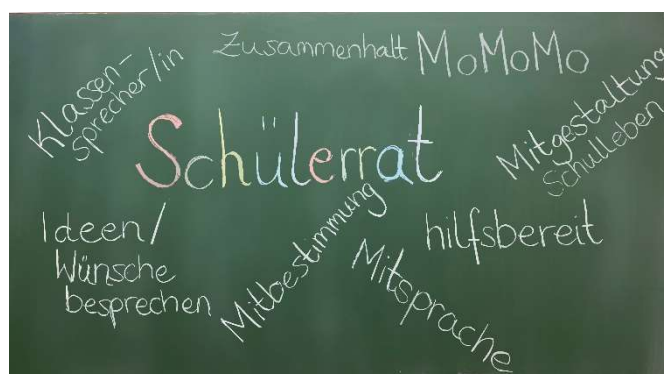 Klassen-
sprecher/in
Zusammenhalt
MoMoMo
Mitgestaltung
Schulleben
Schülerrat
Ideen/
Wünsche
besprechen
Mitbestimmung
Mitsprache
hilfsbereit